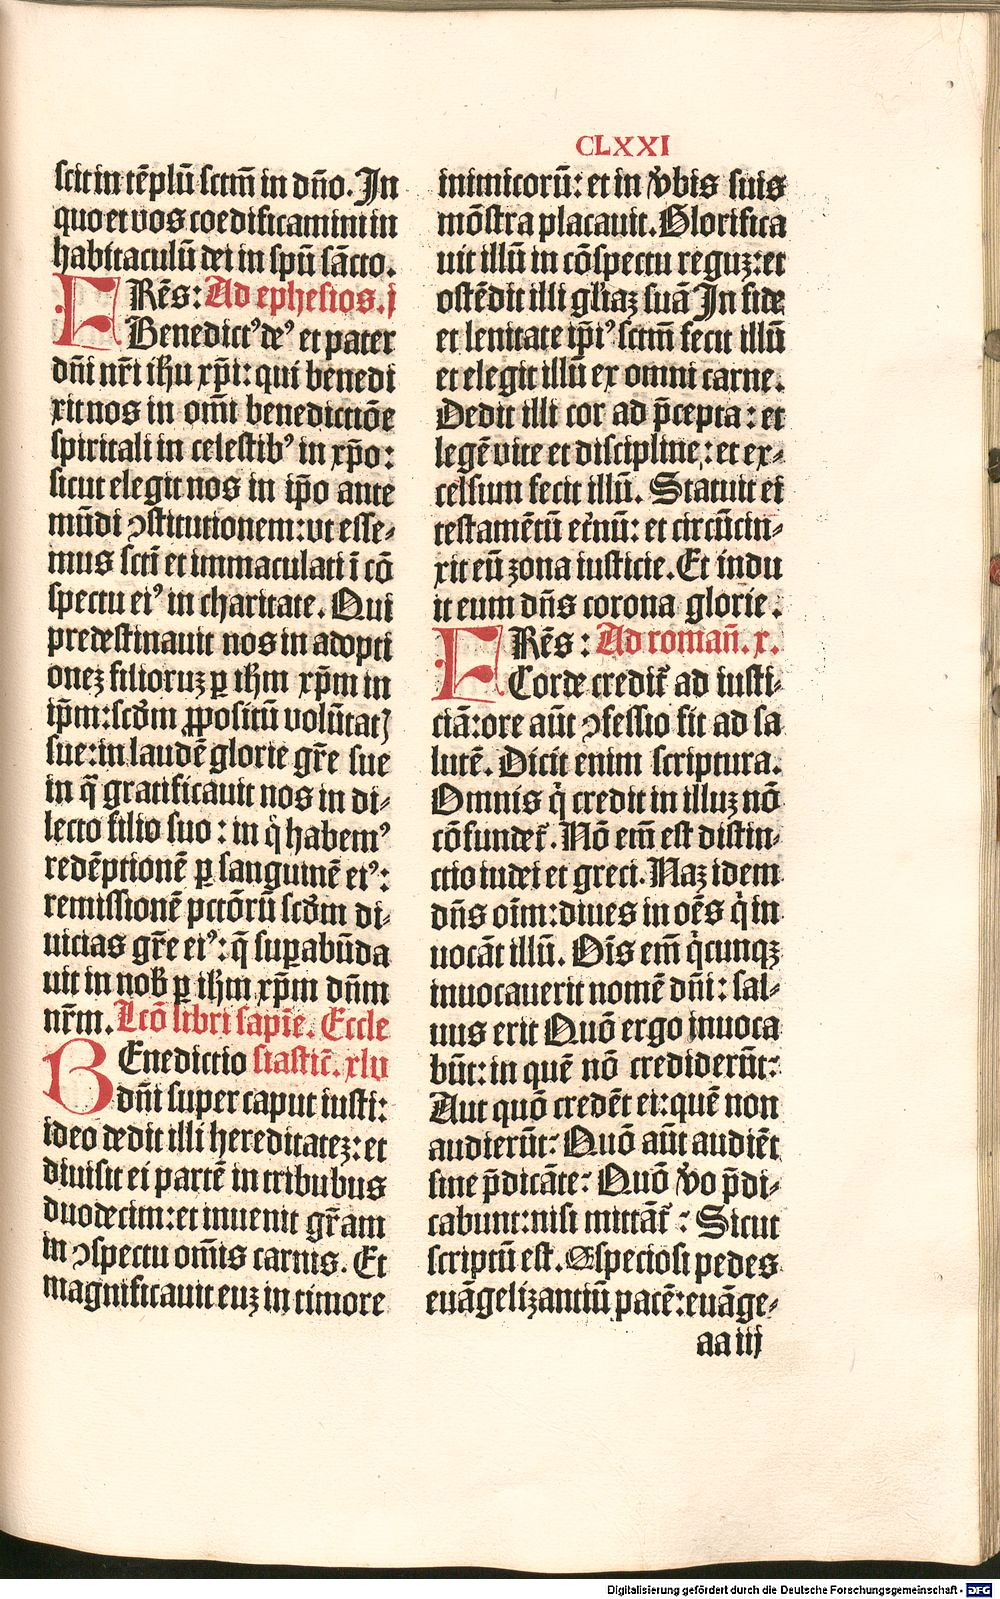 CLXXI
scit in tēplū sctm̄ in dn̄o. In
quo et vos coedificamini in
habitaculū dei in spū sācto.
FRēs: Ad ephesios. j
Benedictꝰ deꝰ et pater
dn̄i nr̄i ihū xp̄i: qui benedi
xit nos in om̄i benedictiōe
spiritali in celestibꝰ in xp̄o:
sicut elegit nos in ip̄o ante
mūdi ↄstitutionem: vt esse⸗
mus scti̅ et immaculati ī cō
spectu eiꝰ in charitate. Qui
predestinauit nos in adopti
onez filioruz ꝑ ihm̄ xp̄m in
ip̄m: scd̄m ꝓpositū volūtatꝭ
sue: in laudē glorie gr̄e sue
in q̄ gratificauit nos in di⸗
lecto filio suo: in q̇ habemꝰ
redēptionē ꝑ sanguinē eiꝰ:
remissionē pctōrū scd̄m di⸗
uicias gr̄e eiꝰ: q̄ suꝑabūda
uit in nob̄ ꝑ ihm̄ xp̄m dn̄m
nr̄m. Lcō libri sapīe. Eccle
BEnedictio siastic̄. xlv
dn̄i super caput iusti:
ideo dedit illi hereditatez: et
diuisit ei partē in tribubus
duodecim: et inuenit gr̄am
in ↄspectu om̄is carnis. Et
magnificauit euz in timore
inimicorū: et in v̄bis suis
mōstra placauit. Glorifica
uit illū in cōspectu reguz: et
ostēdit illi gl̄iaz suā In fide
et lenitate ip̄iꝰ sctm̄ fecit illū
et elegit illū ex omni carne.
Dedit illi cor ad p̄cepta: et
legē vite et discipline: et ex⸗
celsum fecit illū. Statuit ei
testamētū et̄nū: et circūcin⸗
xit eū zona iusticie. Et indu
it eum dn̄s corona glorie.
FRēs: Ad roman̄. x.
Corde credit̄ ad iusti⸗
ciā: ore aūt ↄfessio fit ad sa
lutē. Dicit enim scriptura.
Omnis q̇ credit in illuz nō
cōfundet̄. Nō em̄ est distin⸗
ctio iudei et greci. Naz idem
dn̄s oīm: diues in oēs q̇ in
uocāt illū. Oīs em̄ q̇cunqꝫ
inuocauerit nomē dn̄i: sal⸗
uus erit Quō ergo inuoca
būt: in quē nō crediderūt:
Aut quō credēt ei: quē non
audierūt: Quō aūt audiēt
sine p̄dicāte: Quō v̄o p̄di⸗
cabunt: nisi mittāt̄: Sicut
scriptū est. Q̄ speciosi pedes
euāgelizantiū pacē: euāge⸗
aa iij
Digitalisierung gefördert durch die Deutsche Forschungsgemeinschaft - DFG